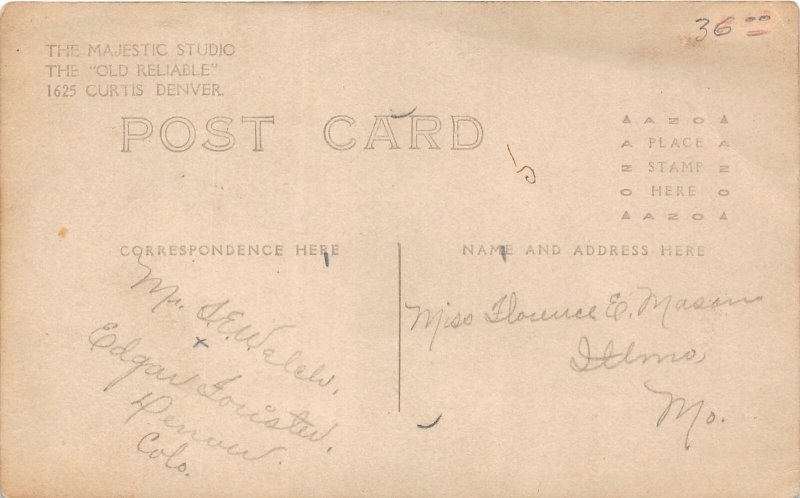 36.00
THE MAJESTIC STUDIO
THE "OLD RELIABLE"
1625 CURTIS DENVER.
POST CARD
AZO
PLACE
STAMP
HERE
AZO
CORRESPONDENCE HERE
Mr.
+
Edgar Forister,
Denver
Colo.
NAME AND ADDRESS HERE
Miss Florence E. Mason
Illmo,
Mo.